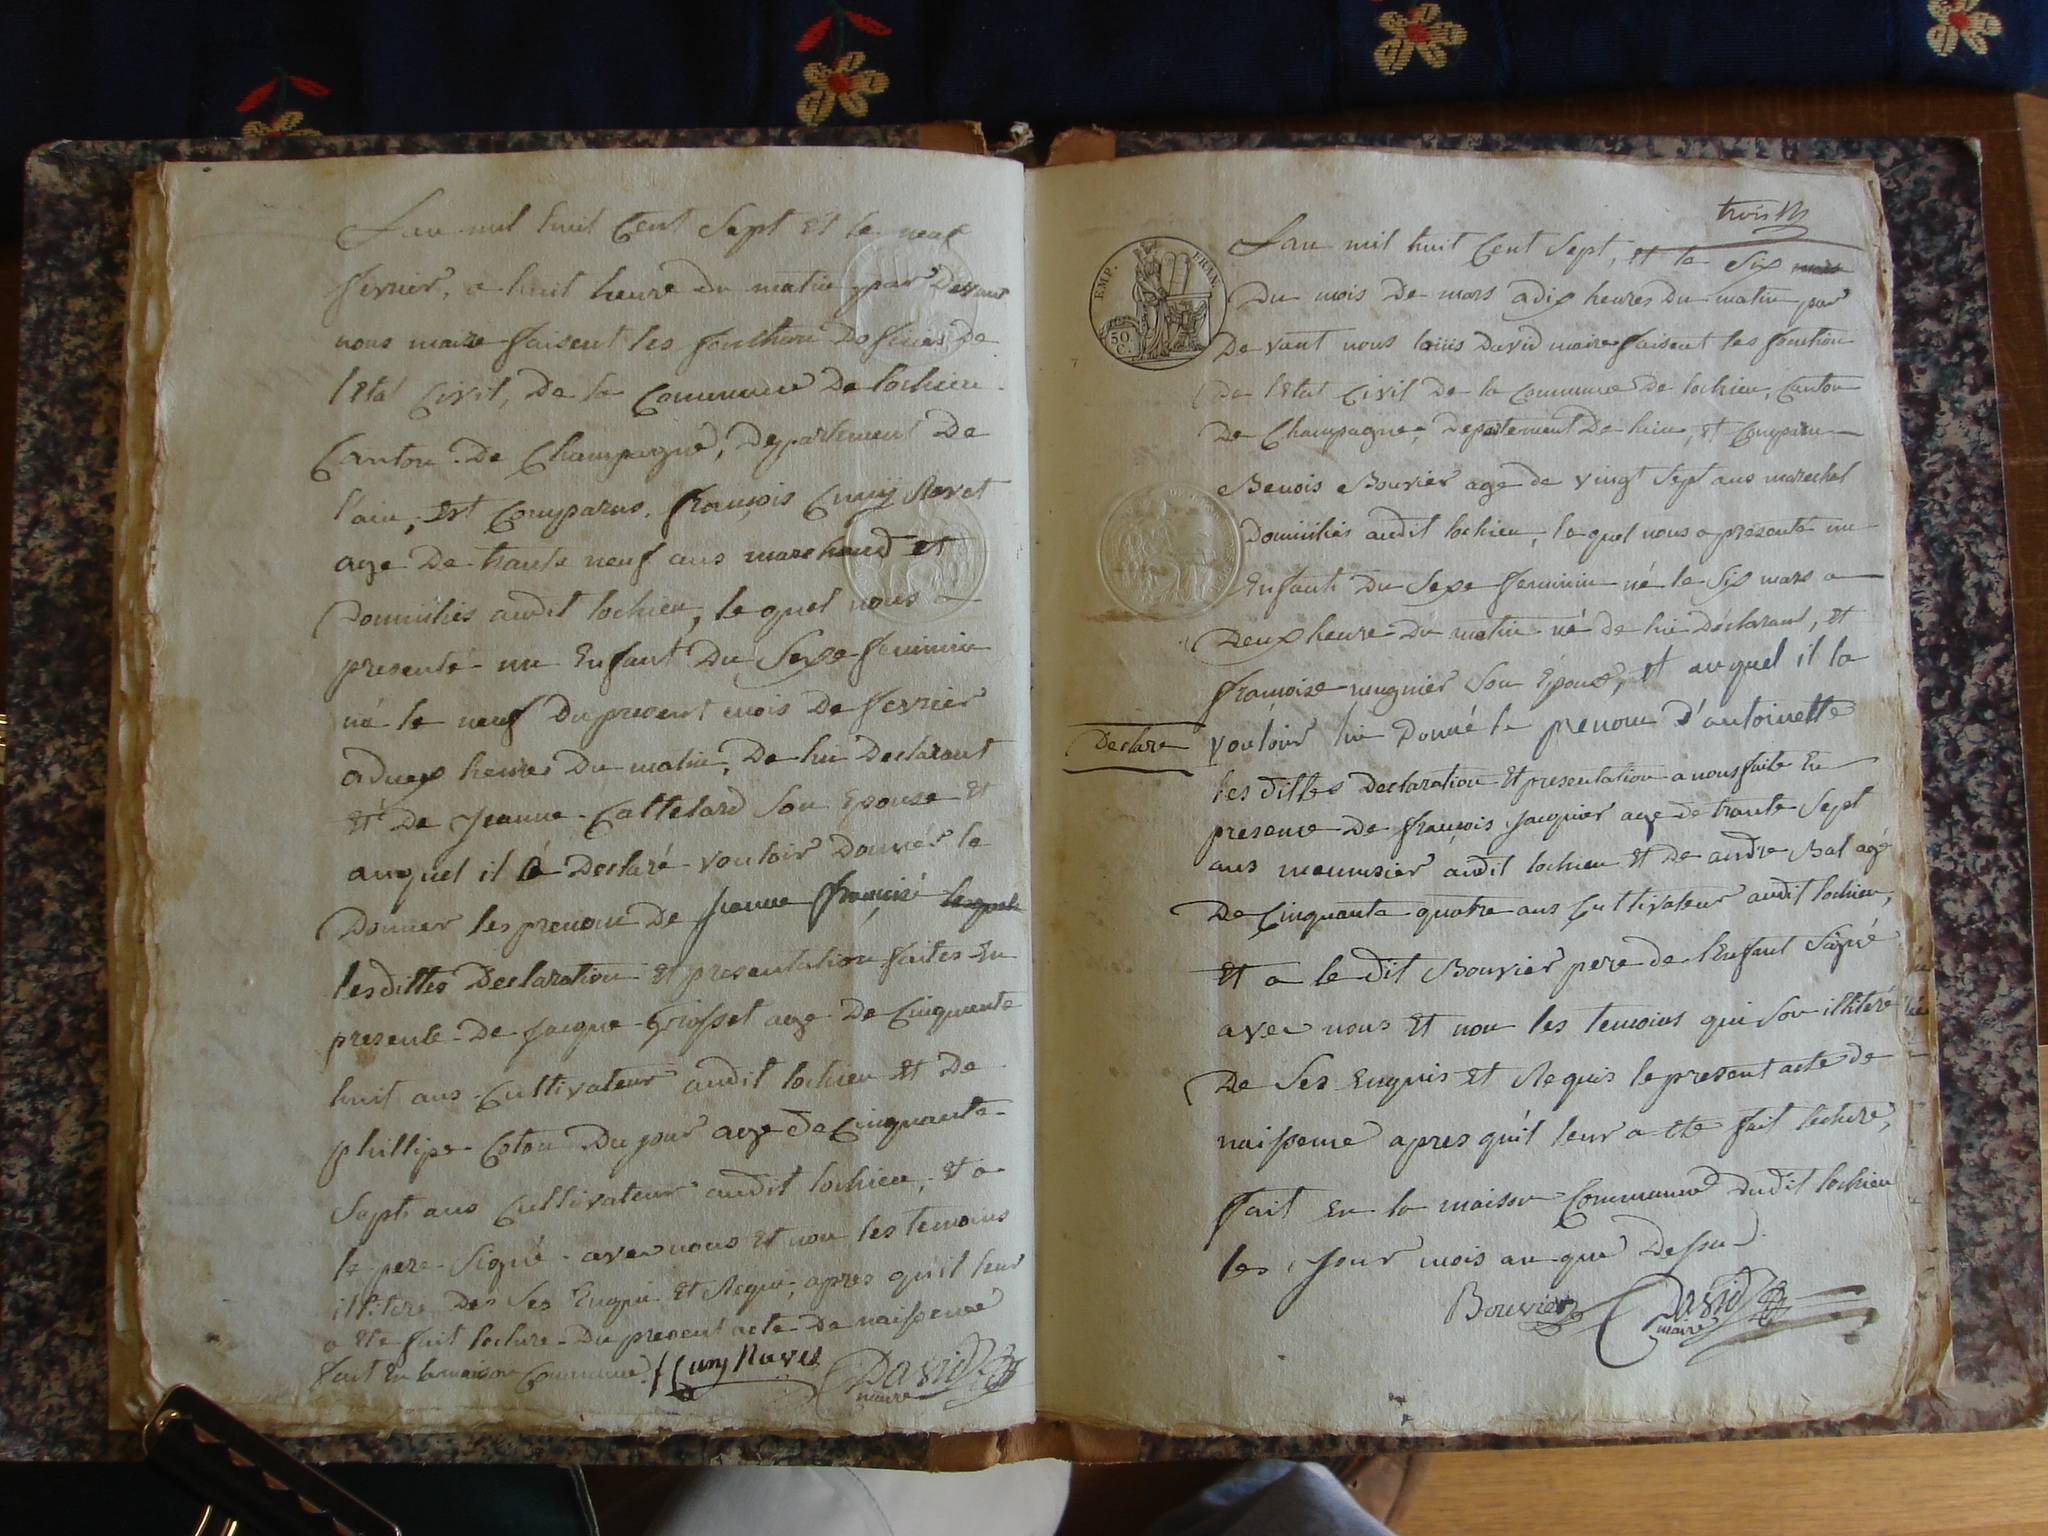 Lan mil huit Cent Sept Et le neuf
fevrier, a huit heure du matin par Devant
nous maire faisent les fonction Doficier De
l'Etat Civil, De la Commune De lochieu
Canton De Champagne, Departement De
l'ain, Est Comparus. françois Cuny Ravet
age De trante neuf ans marchand et
Domicilies audit lochieu, le quel nous a
presenté un Enfant Du Sexe feminin
né le neuf Du present mois De fevrier
a deux heures Du matin, De lui Declarant
Et De Jeanne Cattelard Son Epouse Et
auquel il a Declaré vouloir Donnér le
Donner les prenom De jeanne françoise
les dittes Declaration Et presentation faites En
presente De jacque Grosset age De Cinquente
huit ans Cultivateur audit lochieu Et De
phillipe Coton Dujour age De Cinquante
Sept ans Cultivateur audit lochieu, Et a
le pere Signé avec nous Et non les temoins
illitere De Ses Enquis Et Requi, apres qu'il leur
a Ete fait lecture Du present acte De naissence
fait En la maison Commune. f Cuny Ravet David
maire
trois
Lan mil huit Cent Sept, Et le Six
Du mois De mars a dix heures Du matin par
De vant nous louis David maire faisent les fonction
De l'Etat Civil De la Commune De lochieu, Canton
De Champagne, Departement De l'ain, Et Comparu
Benois Bouvier age de vingt Sept ans marechal
Domicilies audit lochieu, le quel nous a presente un
Enfant Du Sexe feminin né le Six mars a
Deux heure Du matin né de lui Déclarant, Et
françoise mugnier Son Epouse, Et auquel il la
Declare vouloir lui Donné le prenom D'antoinette
les dittes Declaration Et presentation a nous faite En
presence De françois jacquier age De trante Sept
ans menuisier audit lochieu Et De andre Bal agé
De Cinquante quatre ans Cultivateur audit lochieu,
Et a le dit Bouvier pere de l'Enfant Signé
avec nous Et non les temoins qui Son illiteré
De Ses Enquis Et Requis le present acte de
naissence apres qu'il leur a Ete fait lecture,
fait En la maison Commune dudit lochieu
les jour mois an que Dessu
Bouvier David
maire
EMP. FRAN.
50
C.